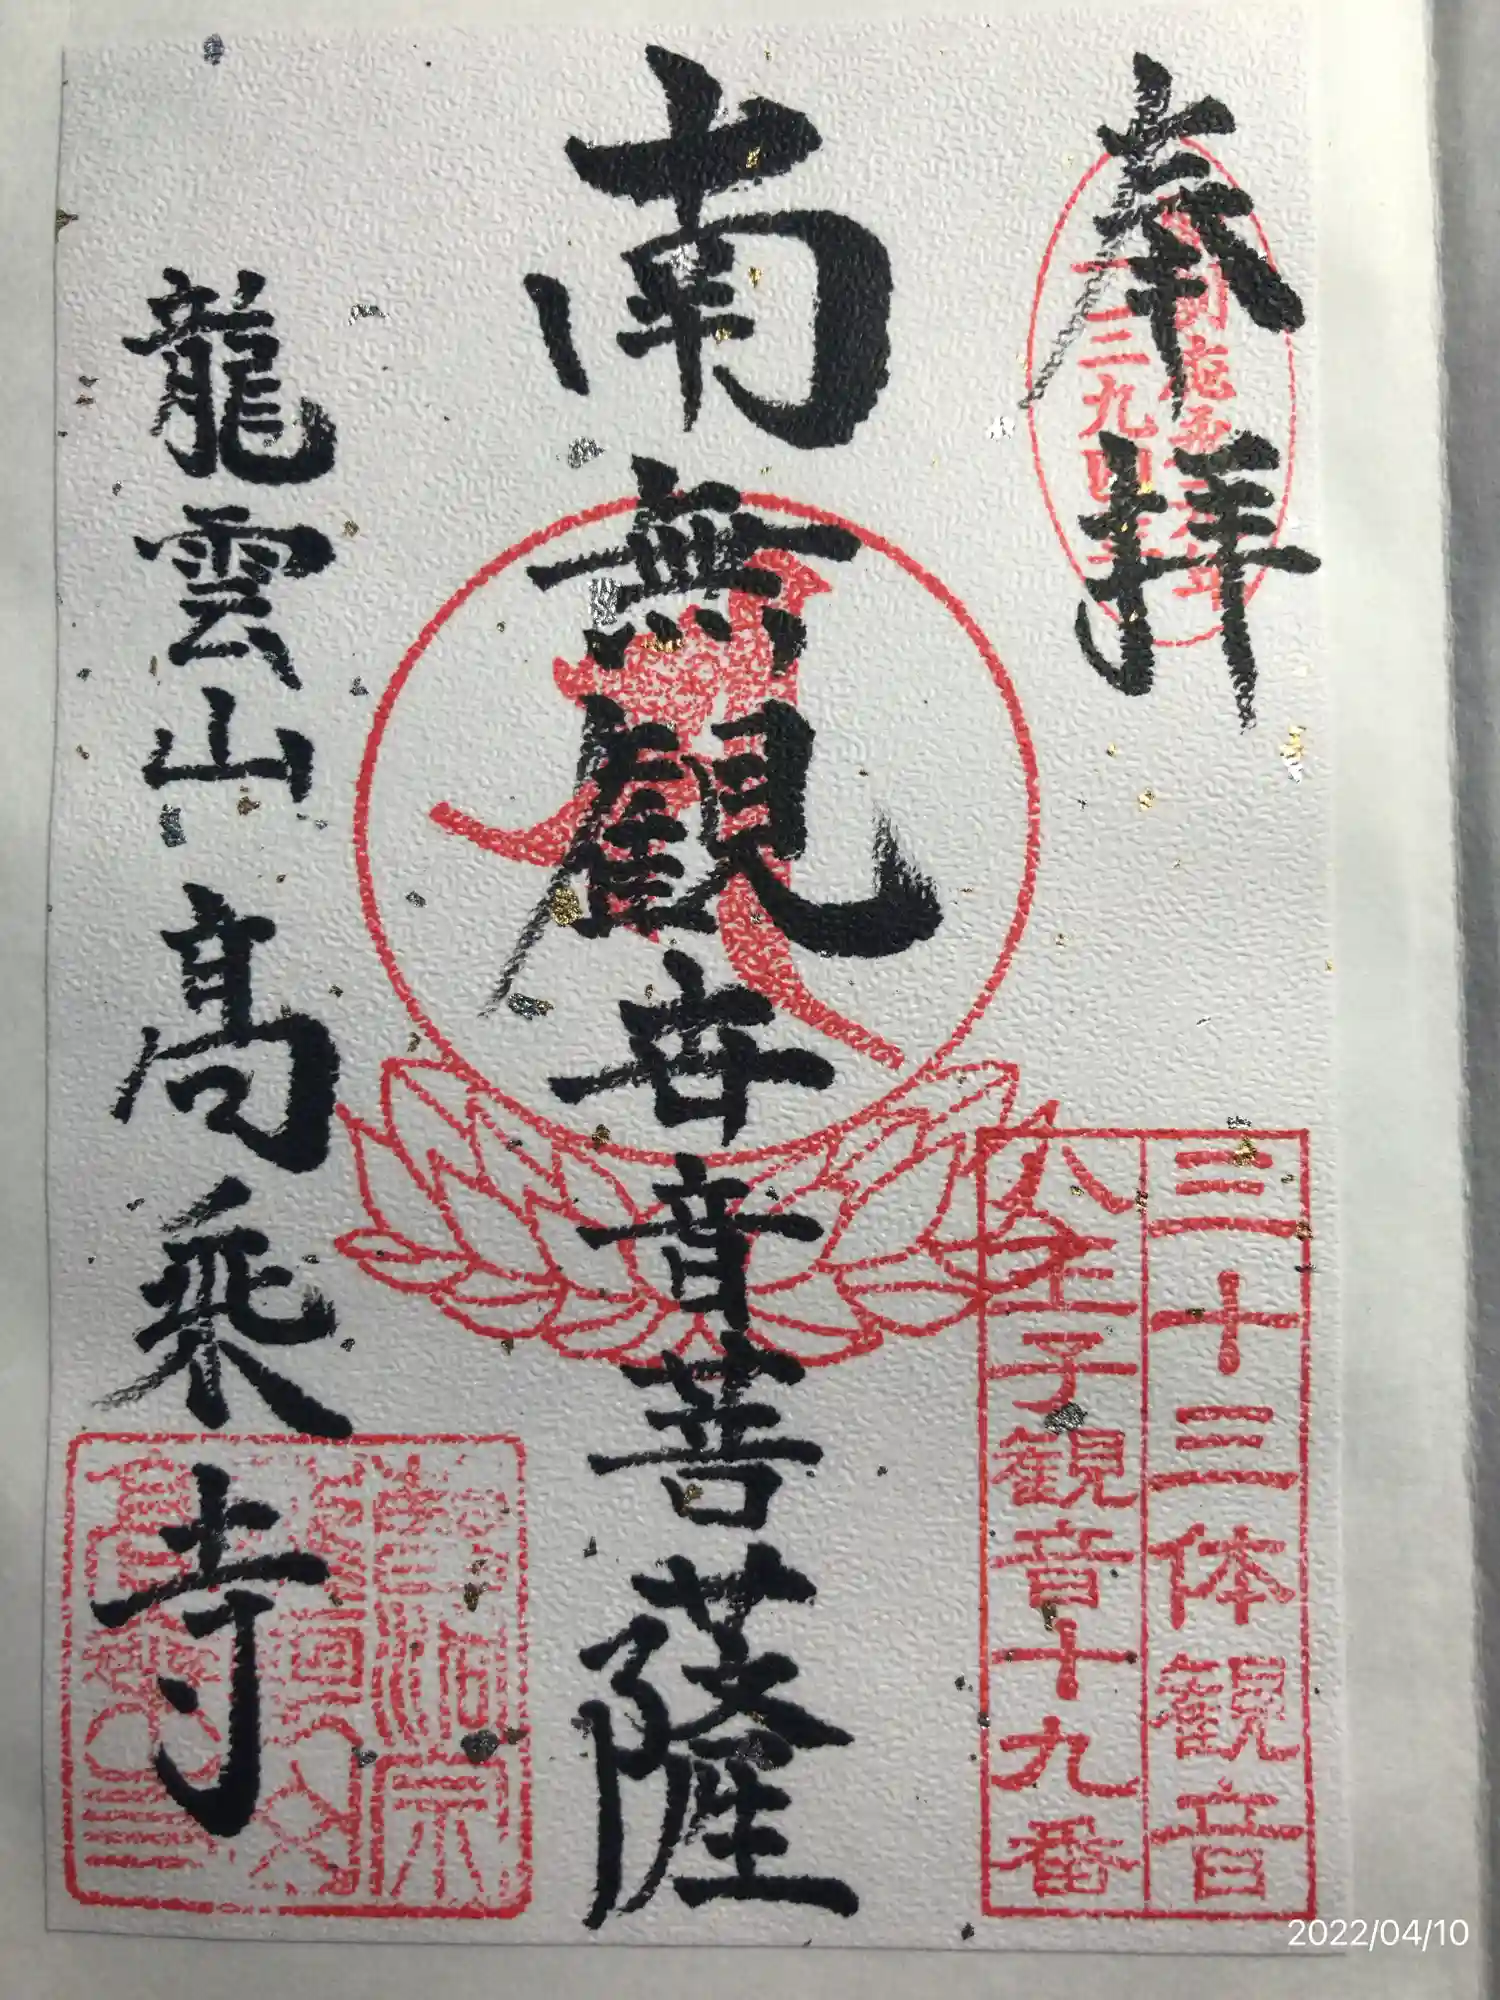 奉拝
三十三体観音
八王子観音十九番
南無観世音菩薩
龍雲山高乘寺
2022/04/10